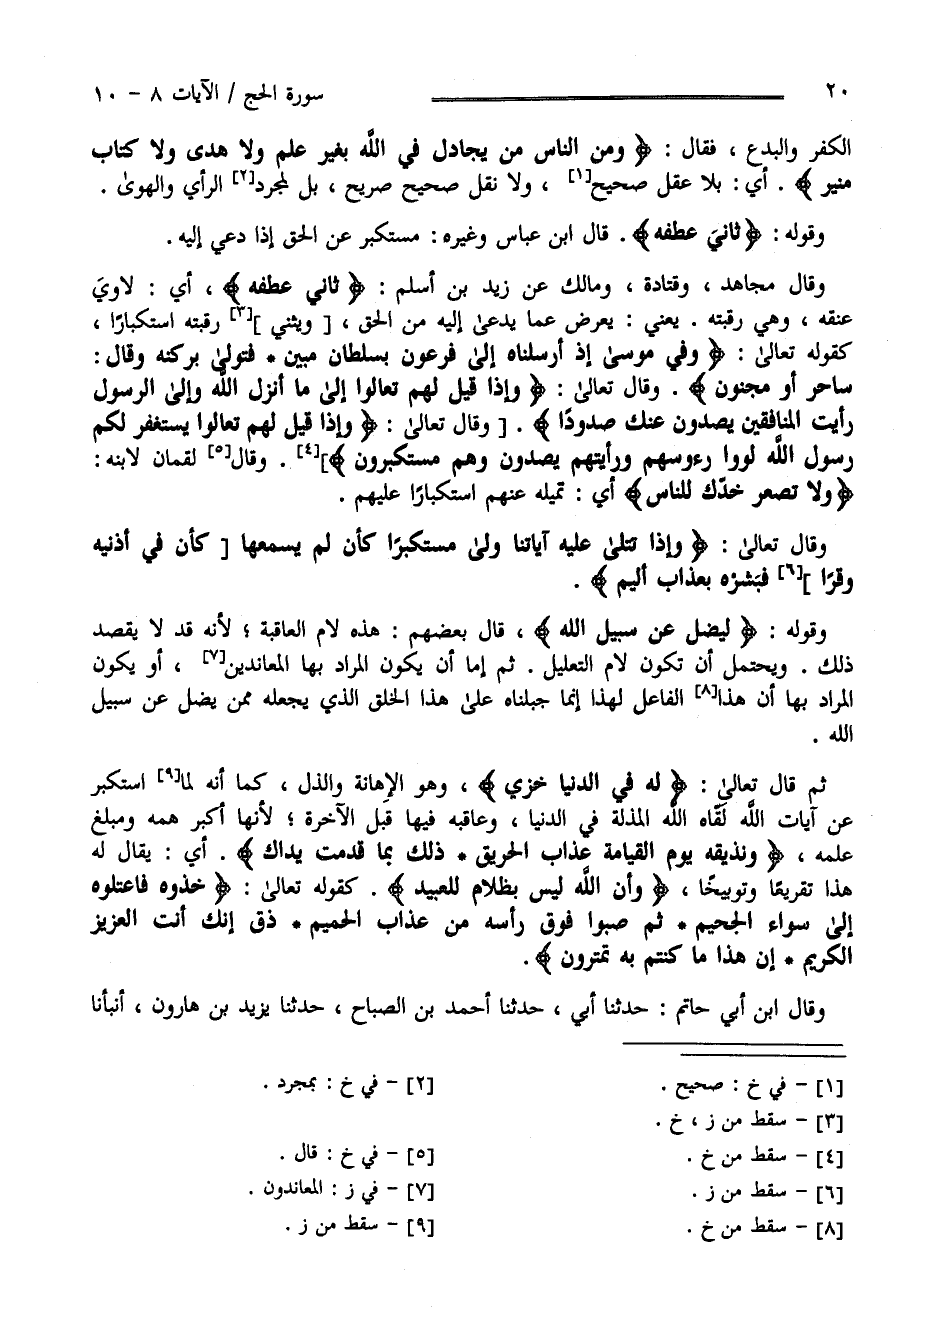 ٢٠ سورة الحج / الآيات ٨ - ١٠
الكفر والبدع ، فقال : ﴿ ومن الناس من يجادل في اللَّه بغير علم ولا هدى ولا كتاب
منير ﴾ . أي : بلا عقل صحيح[١] ، ولا نقل صحيح صريح ، بل لمجرد[٢] الرأي والهوىٰ .
وقوله : ﴿ ثانيَ عطفه ﴾ . قال ابن عباس وغيره : مستكبر عن الحق إذا دعي إليه .
وقال مجاهد ، وقتادة ، ومالك عن زيد بن أسلم : ﴿ ثاني عطفه ﴾ ، أي : لاويَ
عنقه ، وهي رقبته . يعني : يعرض عما يدعىٰ إليه من الحق ، [ ويثني ][٣] رقبته استكبارًا ،
كقوله تعالىٰ : ﴿ وفي موسىٰ إذ أرسلناه إلىٰ فرعون بسلطان مبين * فتولىٰ بركنه وقال :
ساحر أو مجنون ﴾ . وقال تعالىٰ : ﴿ وإذا قيل لهم تعالوا إلىٰ ما أنزل اللَّه وإلىٰ الرسول
رأيت المنافقين يصدون عنك صدودًا ﴾ . [ وقال تعالىٰ : ﴿ وإذا قيل لهم تعالوا يستغفر لكم
رسول اللَّه لووا رءوسهم ورأيتهم يصدون وهم مستكبرون ﴾][٤] . وقال[٥] لقمان لابنه :
﴿ ولا تصعر خدّك للناس ﴾ أي : تميله عنهم استكبارًا عليهم .
وقال تعالىٰ : ﴿ وإذا تتلىٰ عليه آياتنا ولىٰ مستكبرًا كأن لم يسمعها [ كأن في أذنيه
وقرًا ][٦] فبَشرْه بعذاب أليم ﴾ .
وقوله : ﴿ ليضل عن سبيل الله ﴾ ، قال بعضهم : هذه لام العاقبة ؛ لأنه قد لا يقصد
ذلك . ويحتمل أن تكون لام التعليل . ثم إما أن يكون المراد بها المعاندين[٧] ، أو يكون
المراد بها أن هذا[٨] الفاعل لهذا إنما جبلناه علىٰ هذا الخلق الذي يجعله ممن يضل عن سبيل
الله .
ثم قال تعالىٰ : ﴿ له في الدنيا خزي ﴾ ، وهو الإهانة والذل ، كما أنه لما[٩] استكبر
عن آيات اللَّه لَقَّاه اللَّه المذلة في الدنيا ، وعاقبه فيها قبل الآخرة ؛ لأنها أكبر همه ومبلغ
علمه ، ﴿ ونذيقه يوم القيامة عذاب الحريق * ذلك بما قدمت يداك ﴾ . أي : يقال له
هذا تقريعًا وتوبيخًا ، ﴿ وأن اللَّه ليس بظلام للعبيد ﴾ . كقوله تعالىٰ : ﴿ خذوه فاعتلوه
إلىٰ سواء الجحيم * ثم صبوا فوق رأسه من عذاب الحميم * ذق إنك أنت العزيز
الكريم * إن هذا ما كنتم به تمترون ﴾ .
وقال ابن أبي حاتم : حدثنا أبي ، حدثنا أحمد بن الصباح ، حدثنا يزيد بن هارون ، أنبأنا
[١] - في خ : صحيح . [٢] - في خ : بمجرد .
[٣] - سقط من ز ، خ .
[٤] - سقط من خ . [٥] - في خ : قال .
[٦] - سقط من ز . [٧] - في ز : المعاندون .
[٨] - سقط من خ . [٩] - سقط من ز .